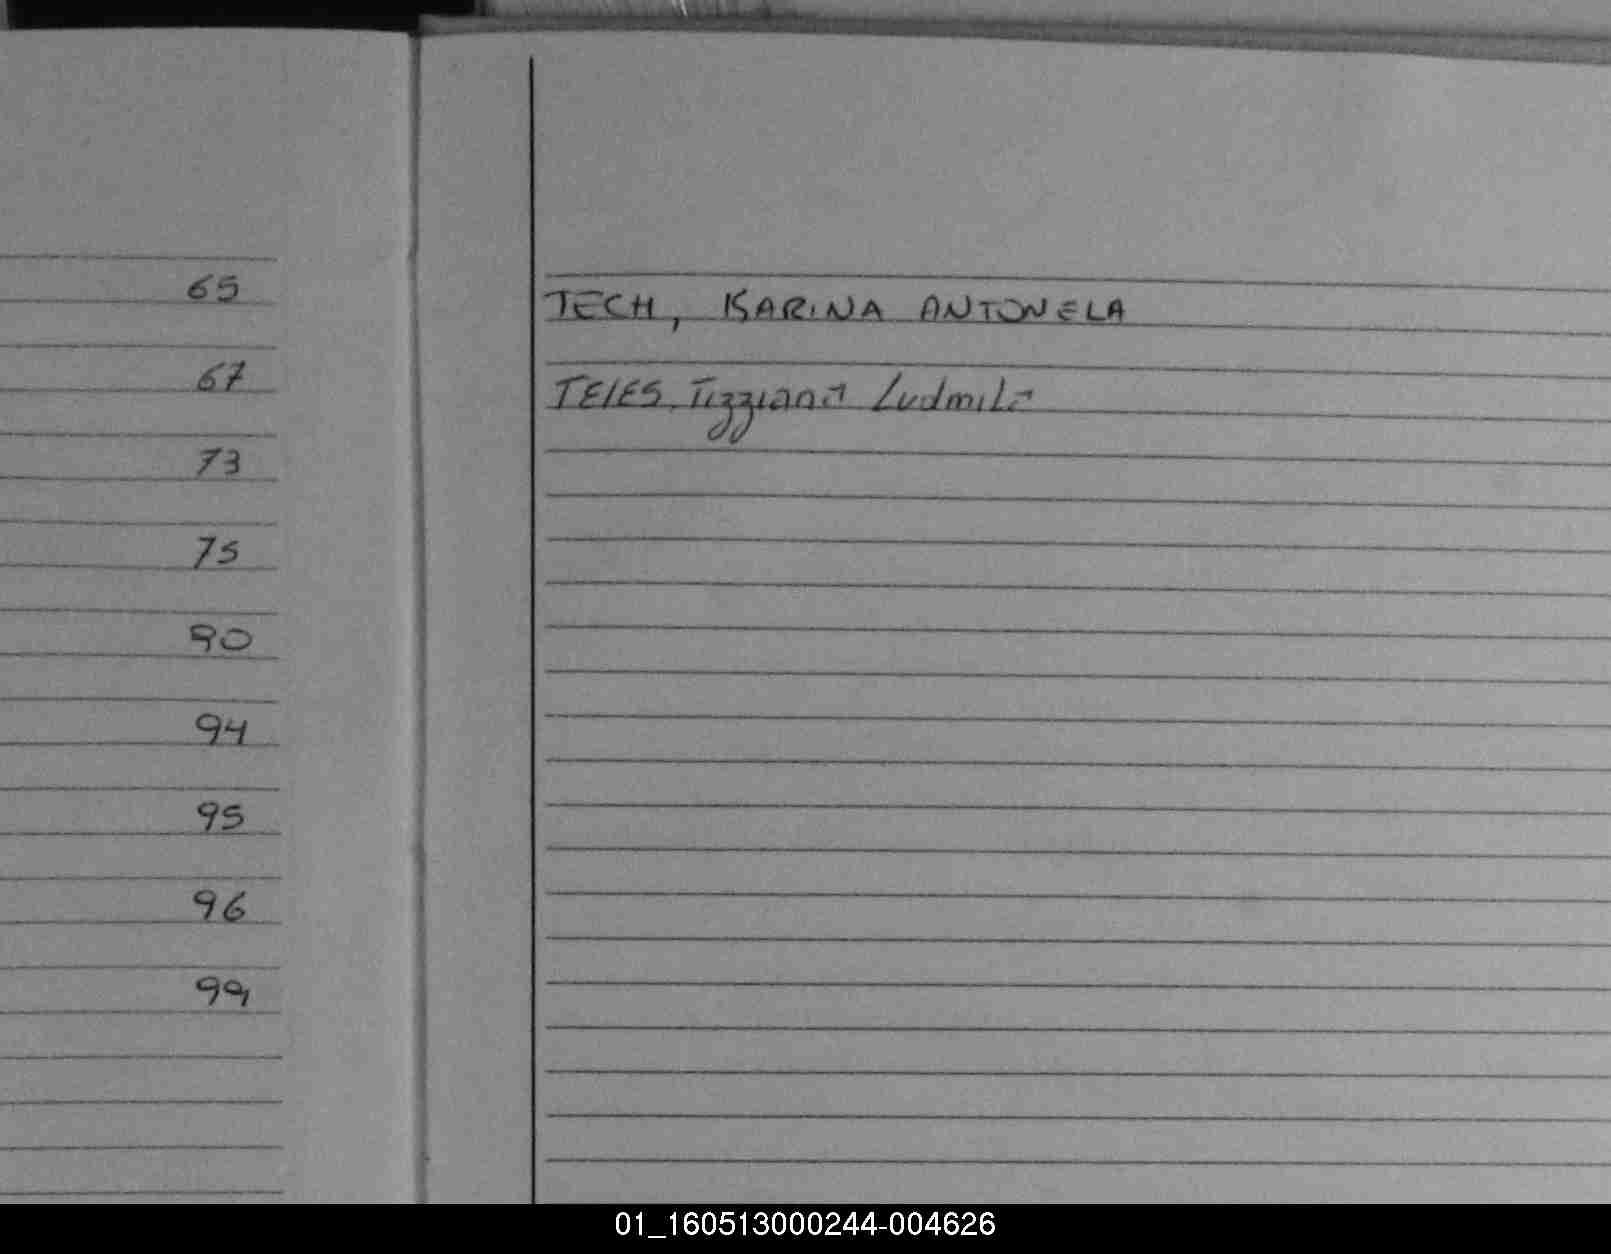 65
67
73
75
90
94
95
96
99
TECH, KARINA ANTONELA
TELES, Tizziana Ludmila
01_160513000244-004626